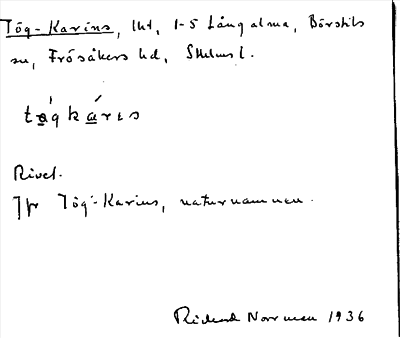 Tög-Karins, lht, 1-5 Långalma, Börstils
sn, Frösåkers hd, Sthlms l.
tögkáris
Rivet.
Jfr Tög-Karins, naturnamnen.
Rickard Norrman 1936